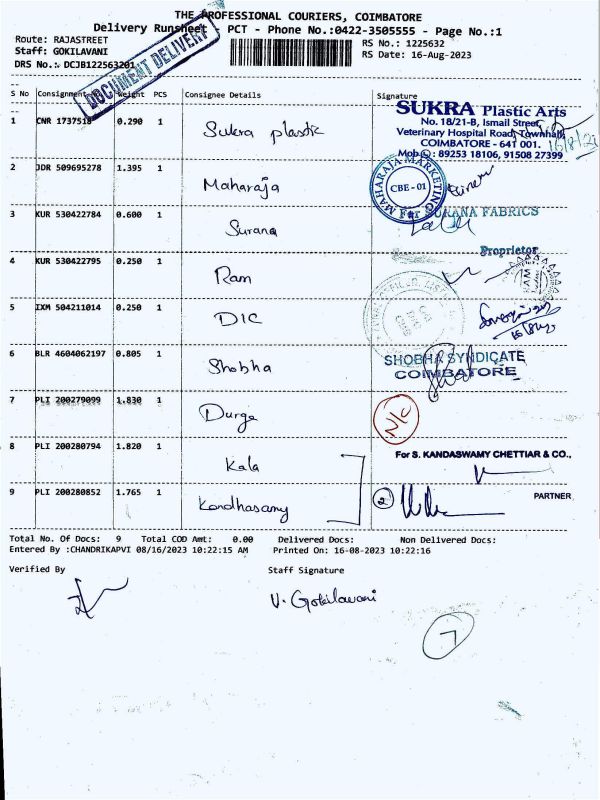 THE PROFESSIONAL COURIERS, COIMBATORE
Delivery Runsheet - PCT - Phone No.:0422-3505555 - Page No.:1
Route: RAJASTREET
RS No.: 1225632
Staff: GOKILAVANI
RS Date: 16-Aug-2023
DRS No.: DCJB122563201
DOCUMENT DELIVERY
S No Consignment Weight PCS Consignee Details Signature
1 CNR 1737518 0.290 1 Sukra plastic
SUKRA Plastic Arts
No. 18/21-B, Ismail Street,
Veterinary Hospital Road, Townhall,
COIMBATORE - 641 001.
Mob : 89253 18106, 91508 27399
16/8/23
2 JDR 509695278 1.395 1 Maharaja
MAHARAJA MARKETING
CBE - 01
3 KUR 530422784 0.600 1 Surana
For SURANA FABRICS
Proprietor
4 KUR 530422795 0.250 1 Ram
5 IXM 504211014 0.250 1 DIC
6 BLR 4604062197 0.805 1 Shobha
SHOBHA SYNDICATE
COIMBATORE
7 PLI 200279099 1.830 1 Durga
N/C
8 PLI 200280794 1.820 1 Kala
For S. KANDASWAMY CHETTIAR & CO.,
9 PLI 200280852 1.765 1 Kandhasamy
2
PARTNER
Total No. Of Docs: 9 Total COD Amt: 0.00 Delivered Docs: Non Delivered Docs:
Entered By :CHANDRIKAPVI 08/16/2023 10:22:15 AM Printed On: 16-08-2023 10:22:16
Verified By Staff Signature
V. Gokilavani
7